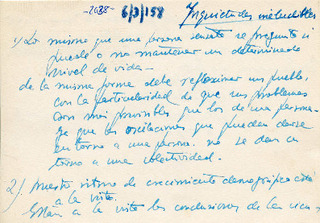 -2088- 6/3/58 Inquietudes ineludibles
1) Lo mismo que una persona sensata se pregunta si
puede o no mantener un determinado
nivel de vida-
de la misma forma debe reflexionar un pueblo,
con la particularidad de que sus problemas
son más previsibles que los de una persona-
Ya que las oscilaciones que pueden darse
en torno a una persona no se dan en
torno a una colectividad.
2) Nuestro ritmo de crecimiento demográfico está
a la vista.
Están a la vista las conclusiones de la